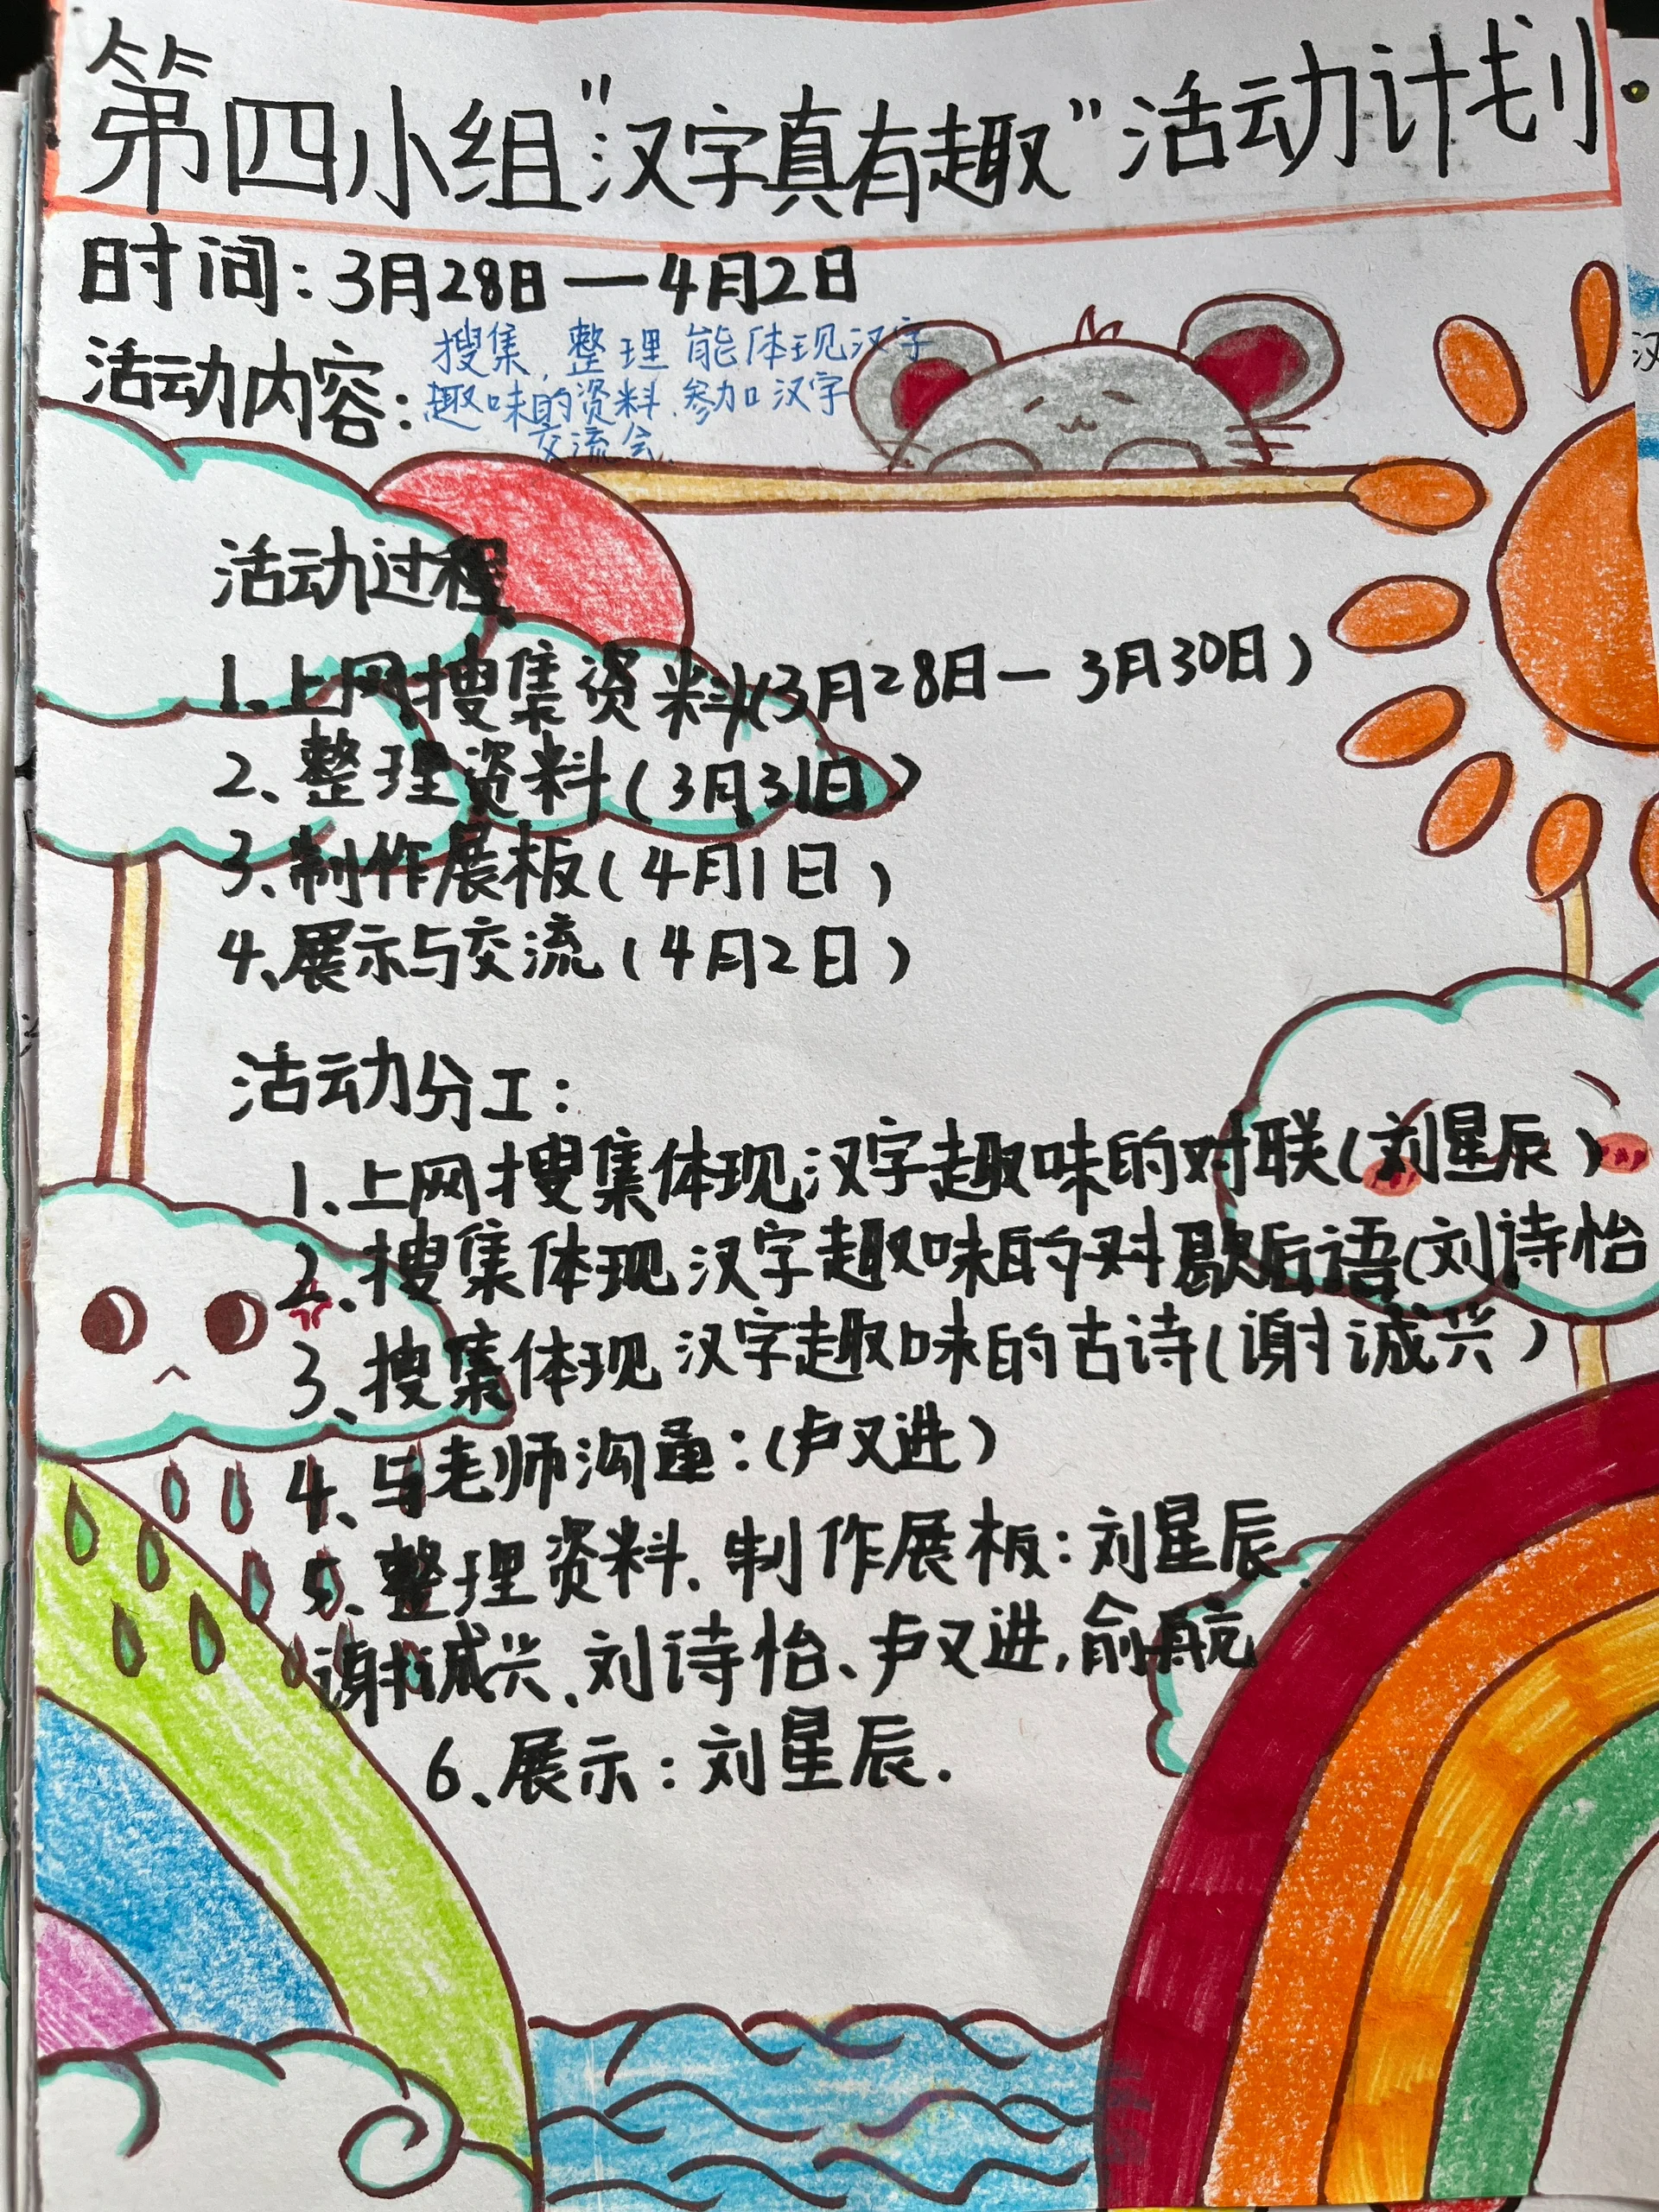 第四小组“汉字真有趣”活动计划
时间:3月28日—4月2日
活动内容:
搜集、整理能体现汉字
趣味的资料、参加汉字
交流会.
活动过程
1.上网搜集资料(3月28日—3月30日)
2、整理资料(3月31日)
3、制作展板(4月1日)
4、展示与交流(4月2日)
活动分工:
1、上网搜集体现汉字趣味的对联(刘星辰)
2、搜集体现汉字趣味的对歇后语(刘诗怡
3、搜集体现汉字趣味的古诗(谢诚兴)
4、与老师沟通:(卢又进)
5、整理资料、制作展板:刘星辰、
谢诚兴、刘诗怡、卢又进,俞航
6、展示:刘星辰.
汉